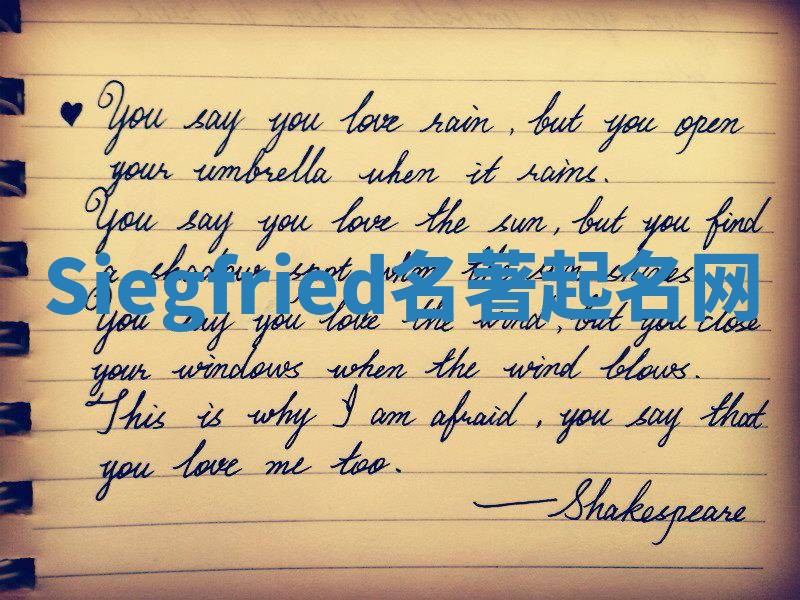 ♥ You say you love rain, but you open
your umbrella when it rains.
You say you love the sun, but you find
a shadow spot when the sun shines.
Siegfried名著起名网
You say you love the wind, but you close
your windows when the wind blows.
This is why I am afraid, you say that
you love me too.
—Shakespeare